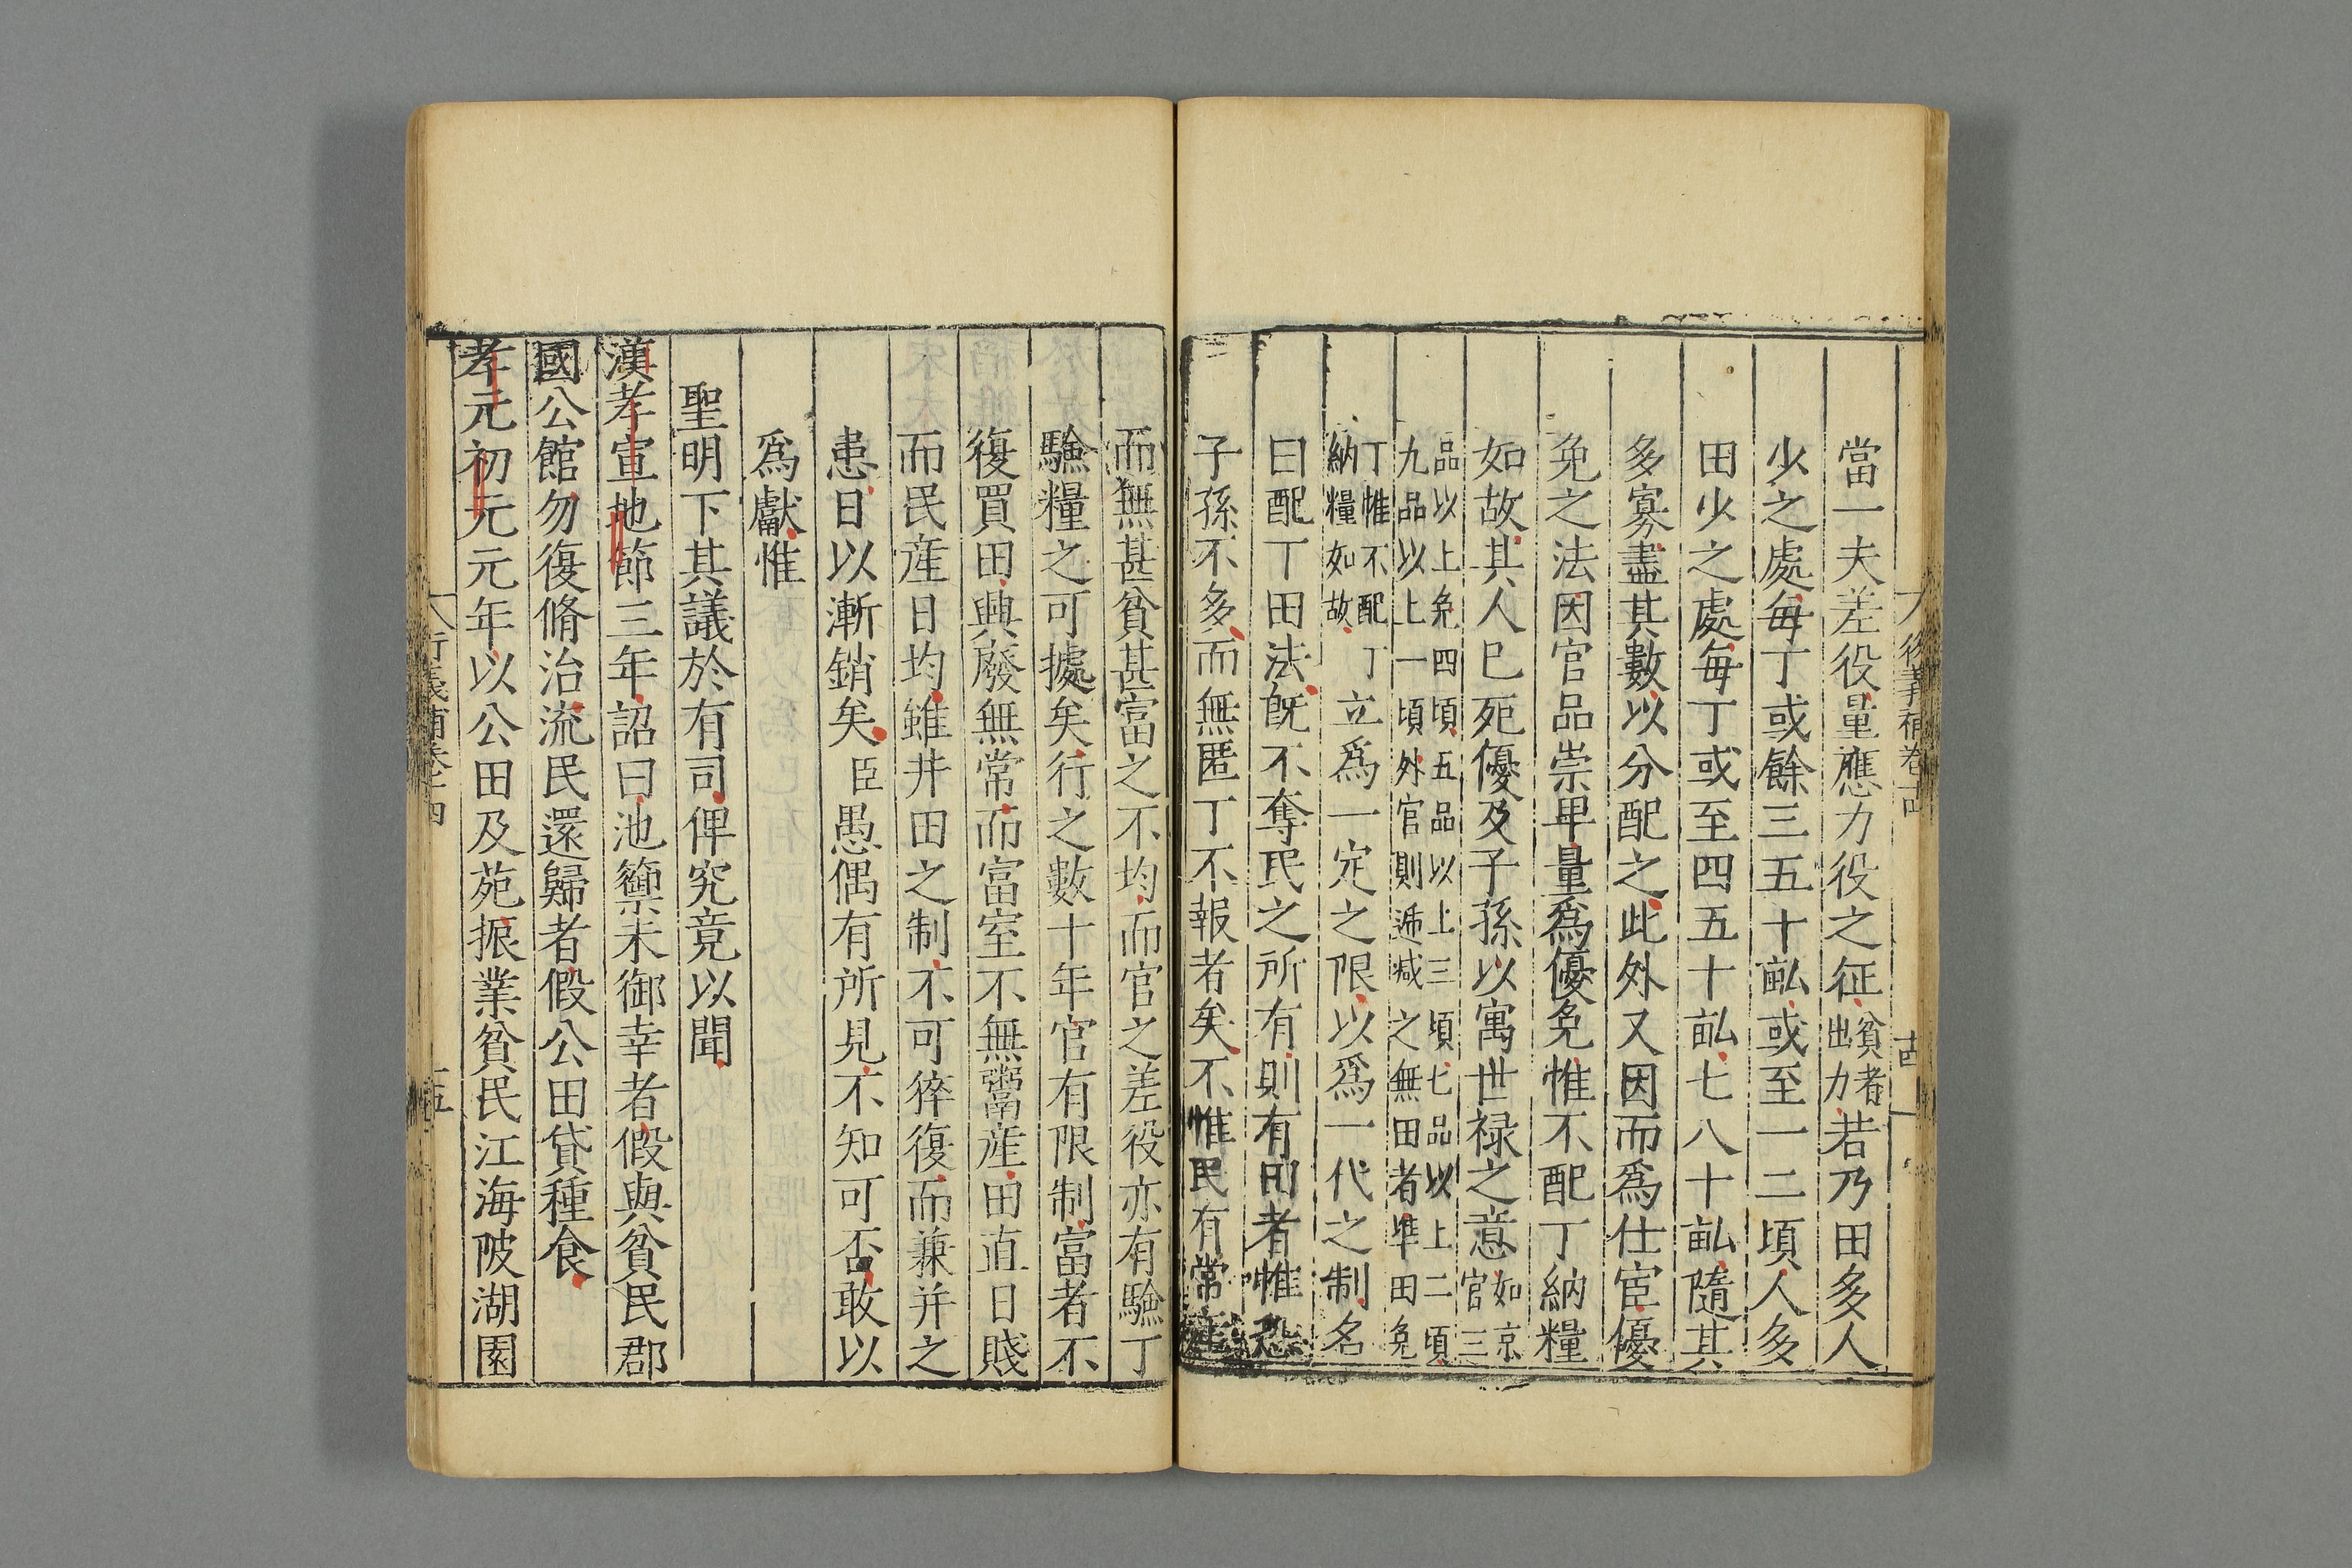 當一夫差役量應力役之征貧者出力若乃田多人
少之處每丁或餘三五十畆或至一二頃人多
田少之處每丁或至四五十畆七八十畆隨其
多寡盡其數以分配之此外又因而爲仕宦優
免之法因官品崇卑量爲優免惟不配丁納糧
如故其人巳死優及子孫以寓世禄之意如京官三
品以上免四頃五品以上三頃七品以上二頃九品以上一頃外官則遞减之無田者凖田免
丁惟不配丁納糧如故立爲一定之限以爲一代之制名
曰配丁田法旣不奪民之所有則有田者惟恐
子孫不多而無匿丁不報者矣不惟民有常產
而無甚貧甚富之不均而官之差役亦有驗丁
驗糧之可據矣行之數十年官有限制富者不
復買田興廢無常而富室不無鬻産田直日賤
而民産日均雖井田之制不可猝復而兼并之
患日以漸銷矣臣愚偶有所見不知可否敢以
爲獻惟
聖明下其議於有司俾究竟以聞
漢孝宣地節三年詔曰池籞未御幸者假與貧民郡
國公館勿復脩治流民還歸者假公田貸種食
孝元初元元年以公田及苑振業貧民江海陂湖園
衍義補卷十四
五